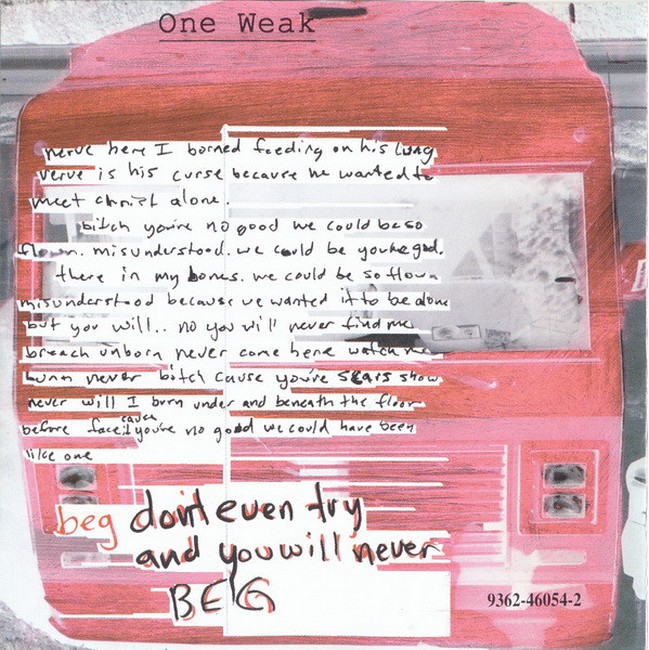 One Weak
nerve here I borned feeding on his lung
verve is his curse because he wanted to
meet christ alone.
bitch you're no good we could be so
flown. misunderstood. we could be you he god.
there in my bones. we could be so flown
misunderstood because we wanted it to be alone
but you will.. no you will never find me
breach unborn never come here watch me
burn never bitch cause you're scars show
never will I burn under and beneath the floor
cause
before face it you're no good we could have been
like one
beg don't even try
and you will never
BEG
9362-46054-2